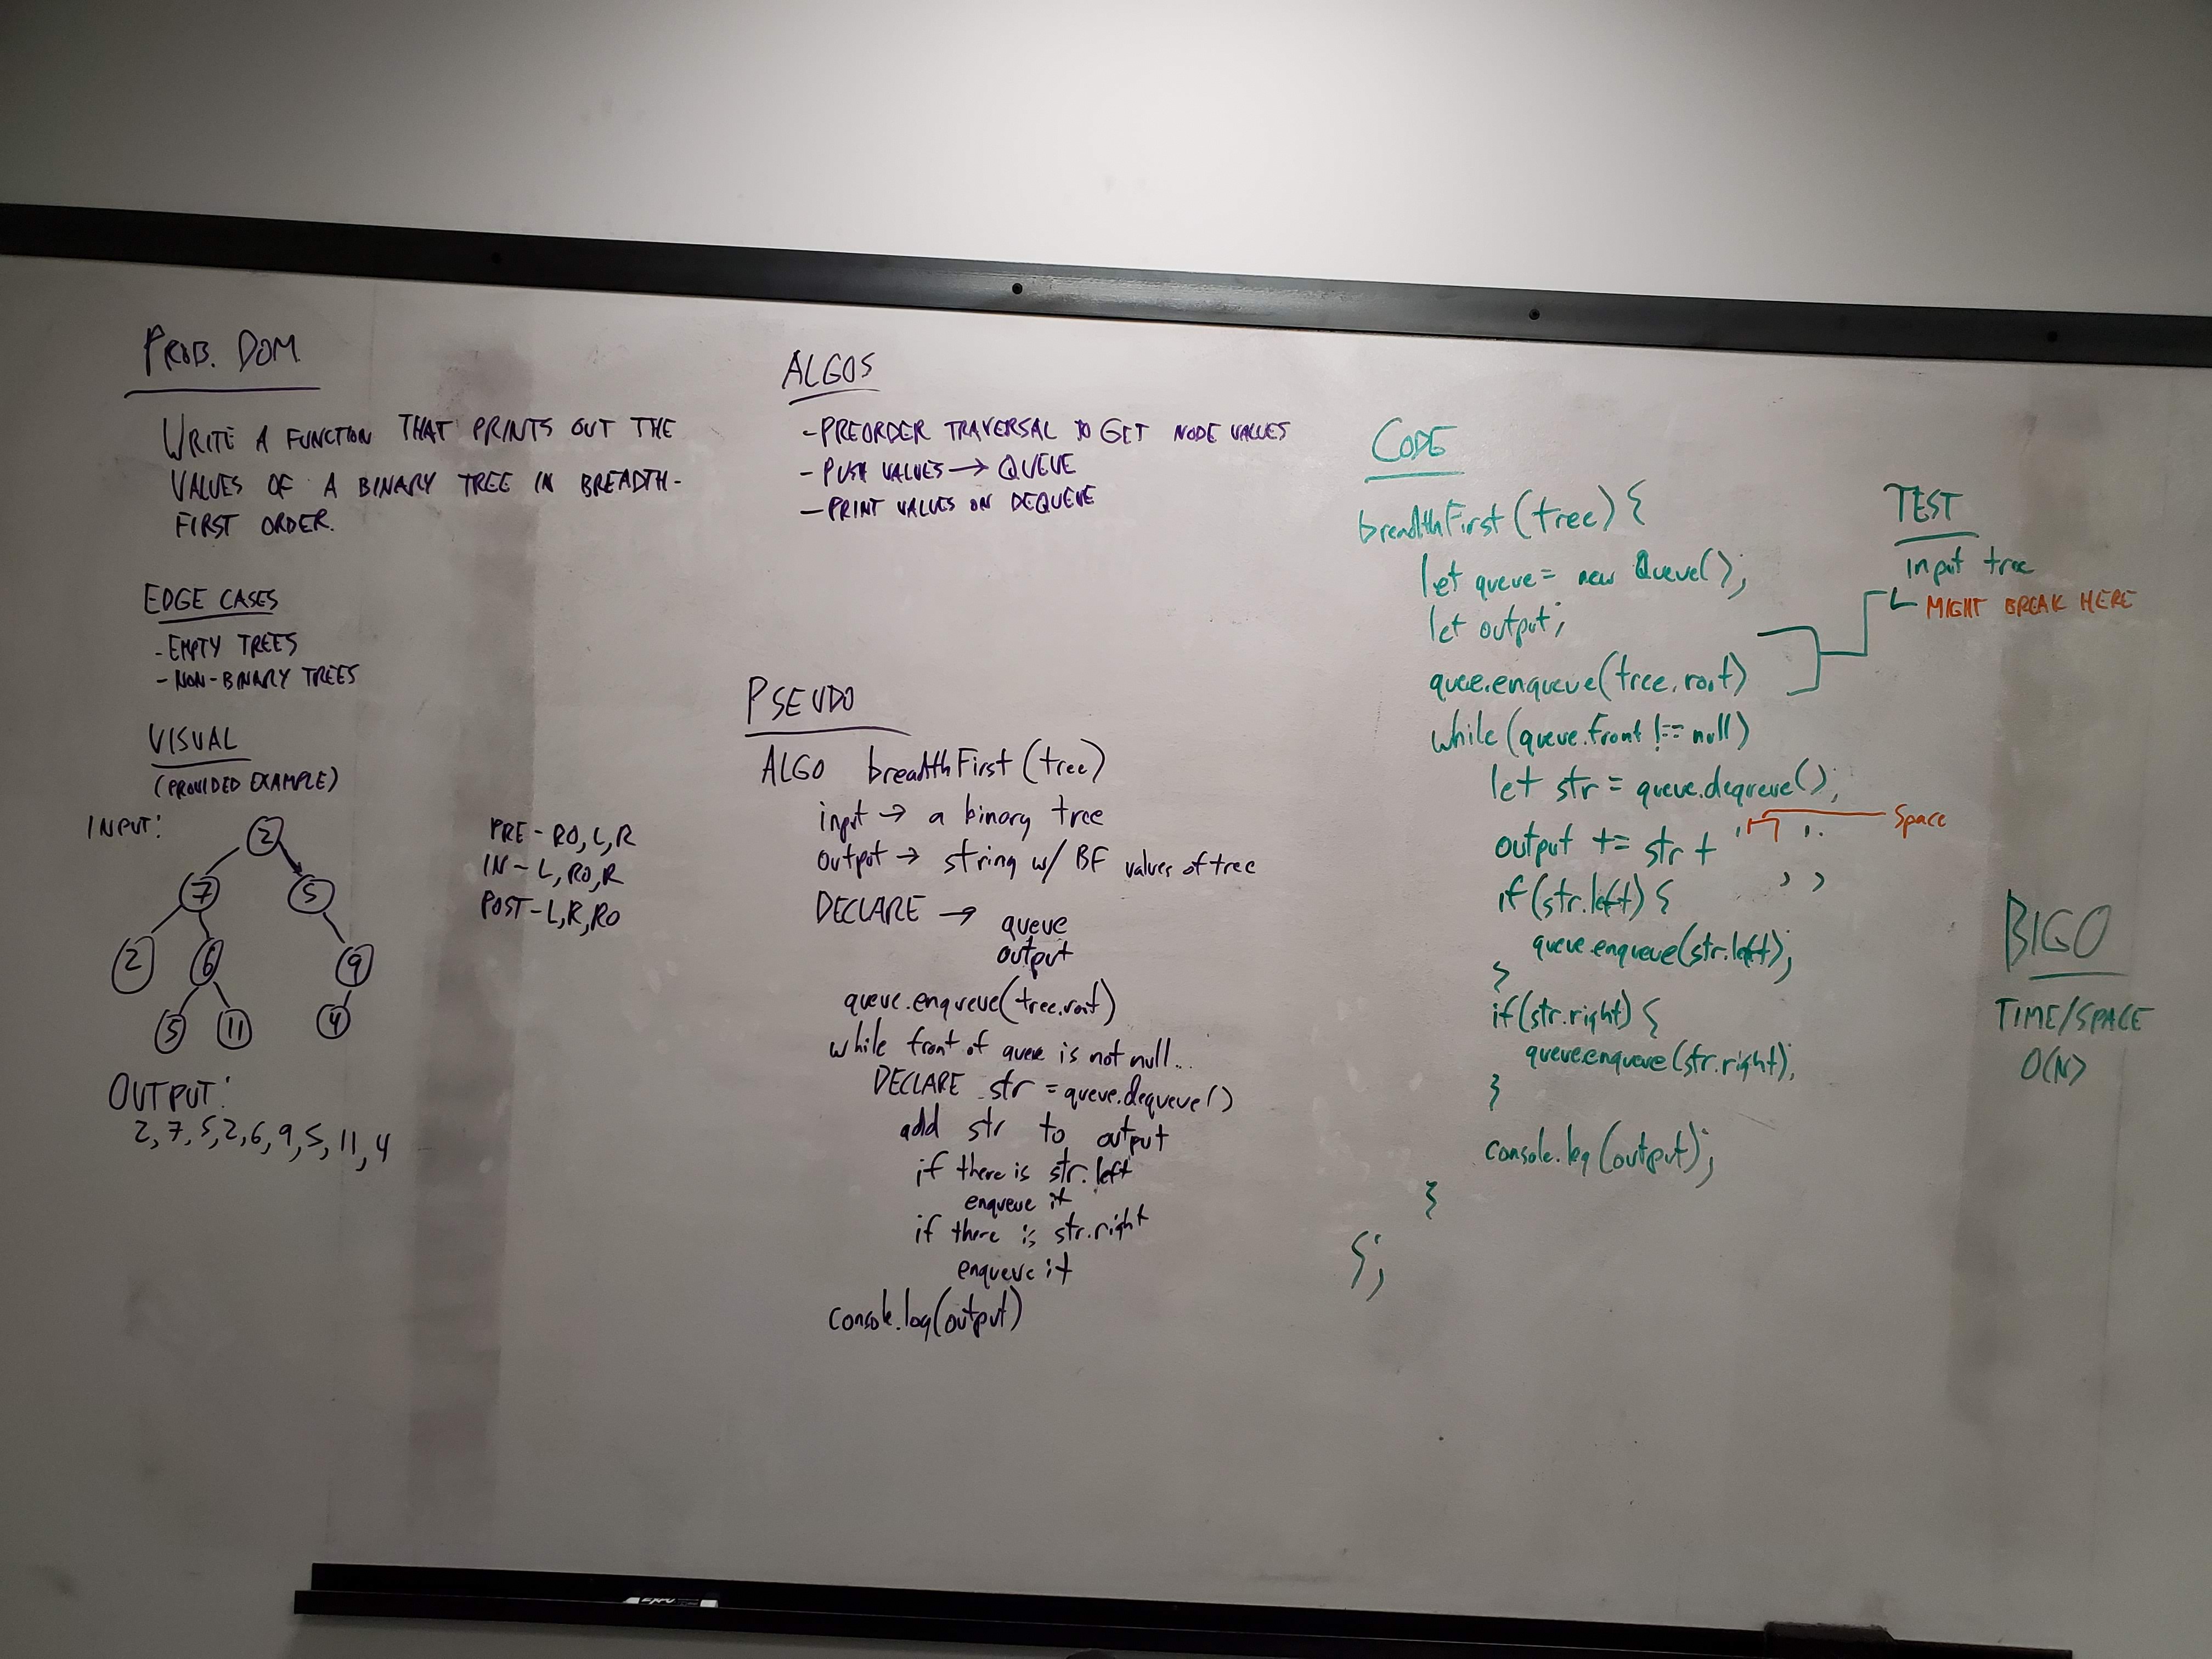 PROB. DOM
WRITE A FUNCTION THAT PRINTS OUT THE
VALUES OF A BINARY TREE IN BREADTH-
FIRST ORDER.
EDGE CASES
- EMPTY TREES
- NON-BINARY TREES
VISUAL
(PROVIDED EXAMPLE)
INPUT:
2
7 5
2 6 9
5 11 4
OUTPUT:
2, 7, 5, 2, 6, 9, 5, 11, 4
PRE - RO, L, R
IN - L, RO, R
POST - L, R, RO
ALGOS
- PREORDER TRAVERSAL TO GET NODE VALUES
- PUSH VALUES → QUEUE
- PRINT VALUES ON DEQUEUE
PSEUDO
ALGO breadthFirst(tree)
input → a binary tree
output → string w/ BF values of tree
DECLARE → queue
output
queue.enqueue(tree.root)
while front of queue is not null...
DECLARE str = queue.dequeue()
add str to output
if there is str.left
enqueue it
if there is str.right
enqueue it
console.log(output)
CODE
breadthFirst(tree) {
let queue = new Queue();
let output;
queue.enqueue(tree.root)
while(queue.front !== null)
let str = queue.dequeue();
output += str + ' '.
Space
if(str.left) {
queue.enqueue(str.left);
}
if(str.right) {
queue.enqueue(str.right);
}
console.log(output);
}
};
TEST
input tree
MIGHT BREAK HERE
BIGO
TIME/SPACE
O(N)
EXPO